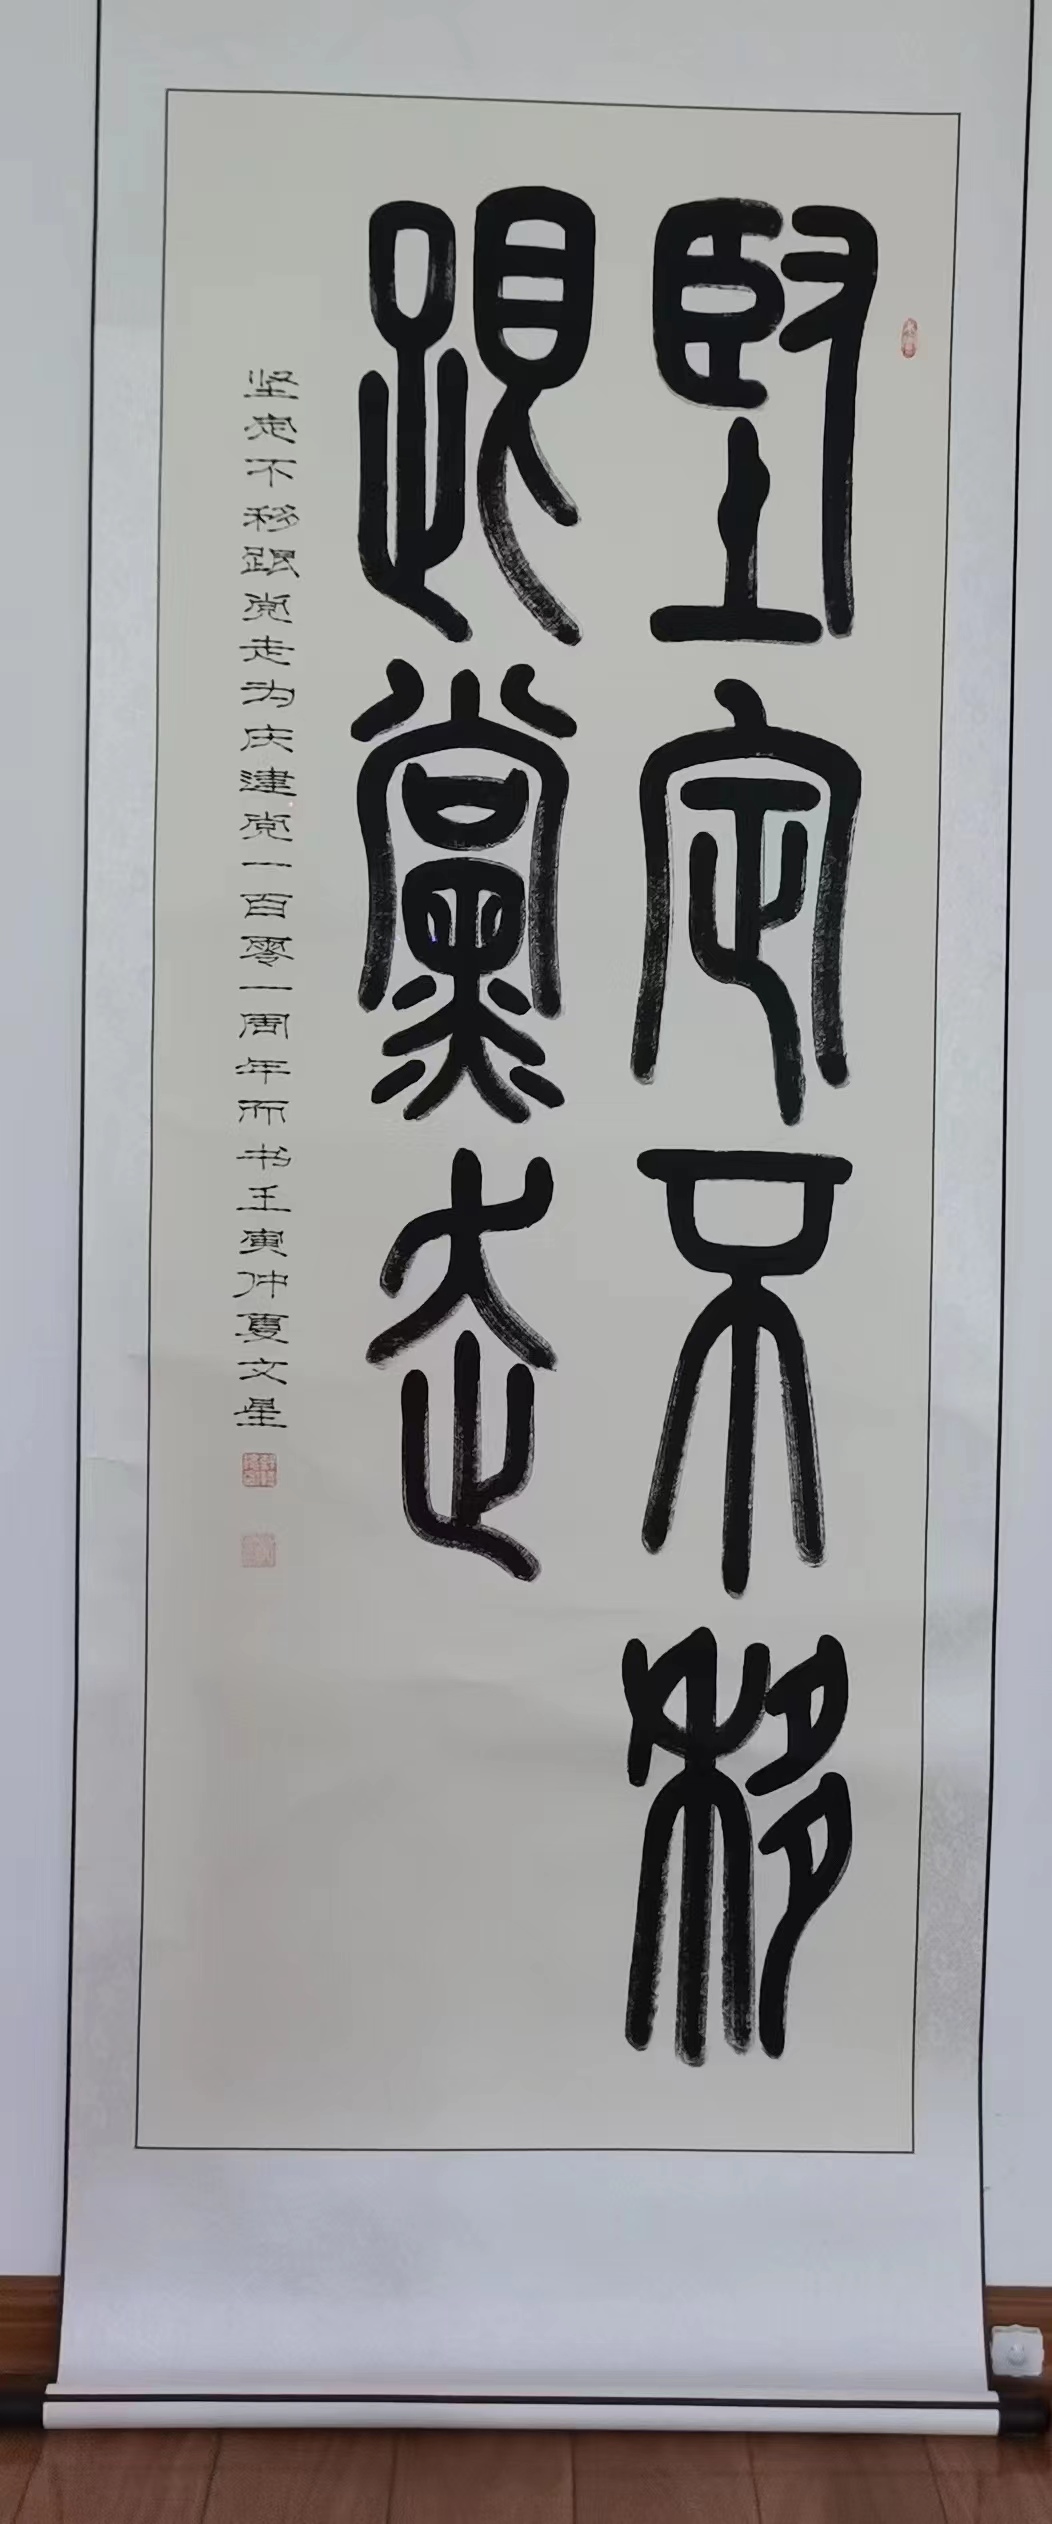 堅定不移
跟黨走
坚定不移跟党走为庆建党一百零一周年而书壬寅仲夏文星